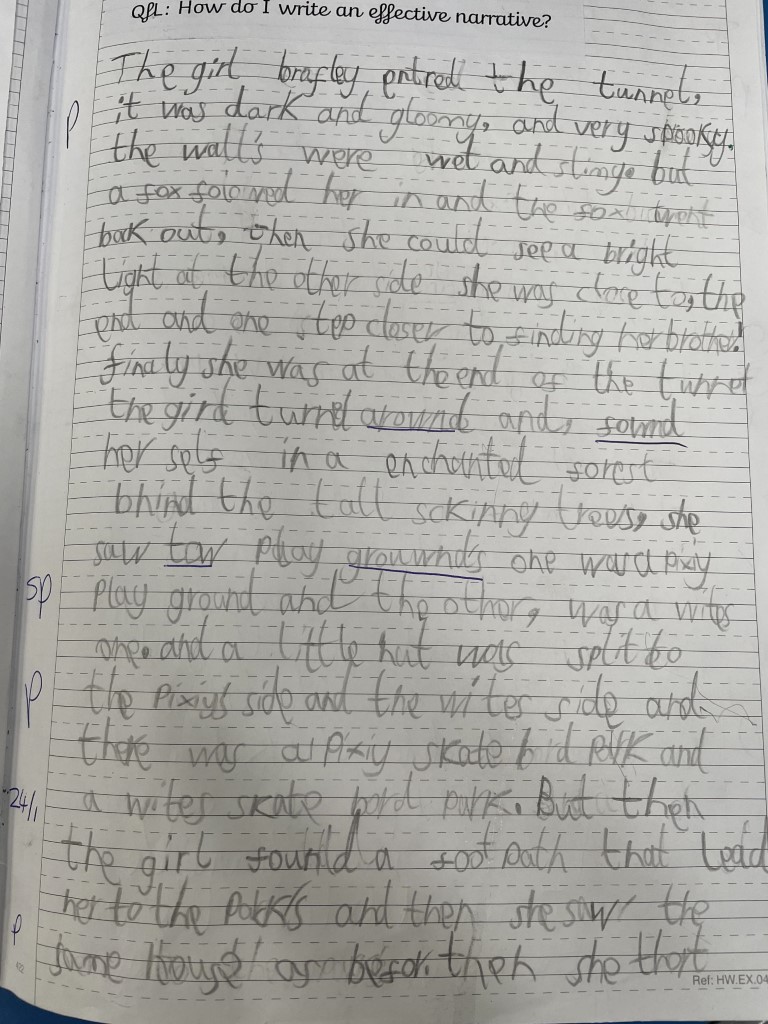 QfL: How do I write an effective narrative?
The girl brafley entred the tunnel,
p it was dark and gloomy, and very spooky.
the wall's were wet and slimge but
a fox folowed her in and the fox went
back out, then she could see a bright
light at the other side she was close to, the
end and one step closer to finding her brother!
finaly she was at the end of the tunnel
the girl turnd around and, found
her self in a enchanted forest
bhind the tall sckinny trees, she
saw tow play grouwnds one was a pixy
sp play ground and the other, was a wites
one. and a little hut was split to
p the pixiys side and the wites side and
there was a pixiy skate bord park and
24/1 a wites skate bord park. But then
the girl found a foot path that lead
her to the park's and then she saw the
p same House as befor. then she thort
Ref: HW.EX.04